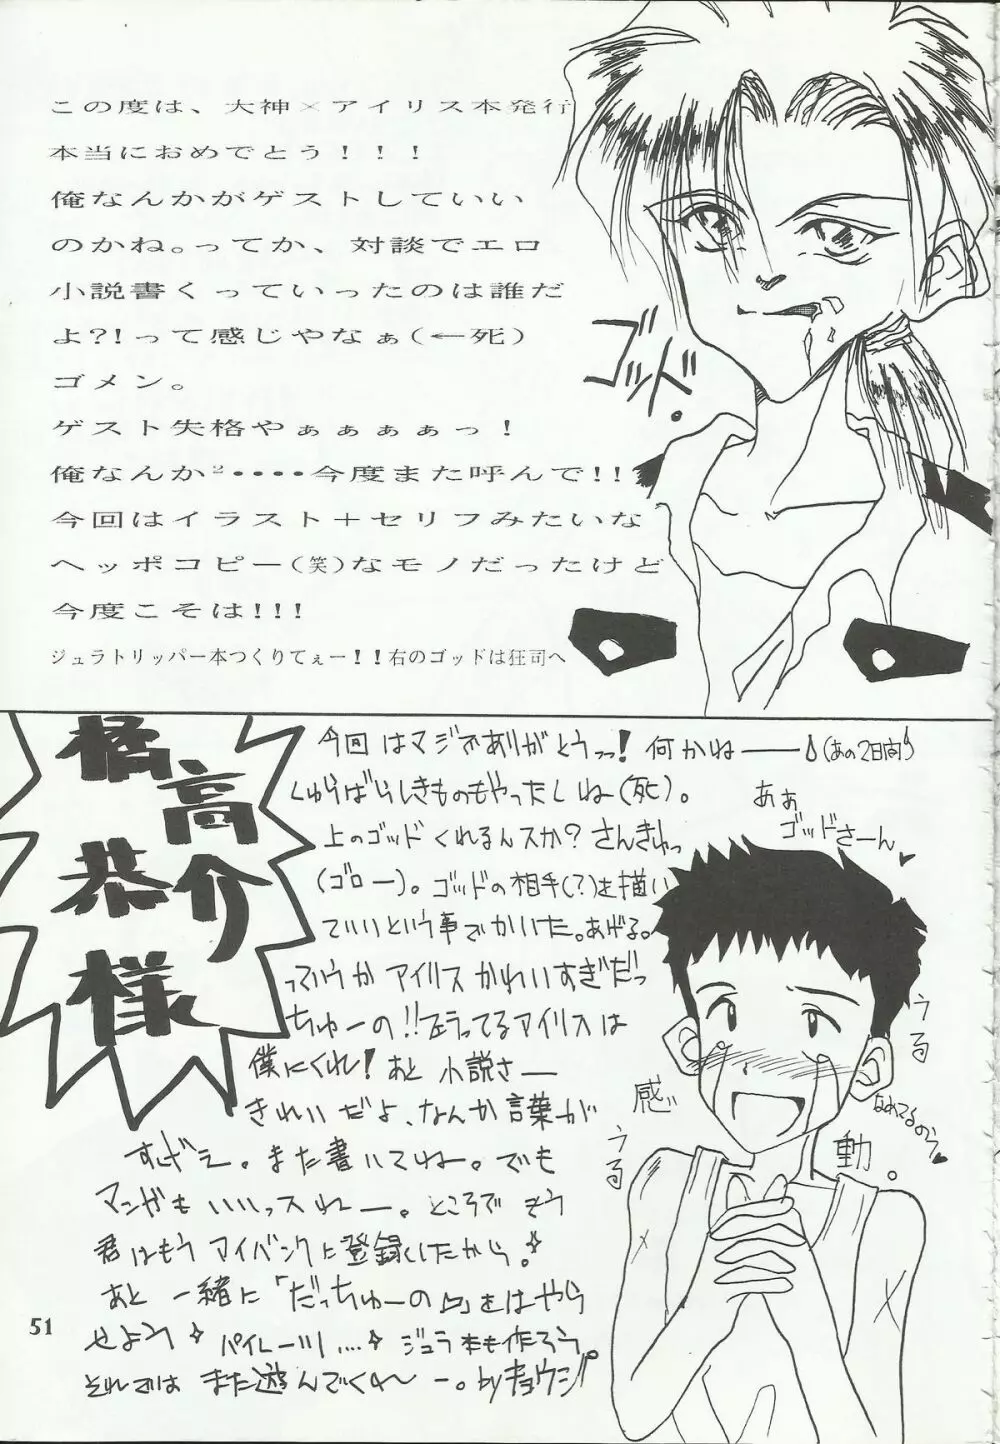 この度は、大神×アイリス本発行
本当におめでとう！！！
俺なんかがゲストしていい
のかね。ってか、対談でエロ
小説書くっていったのは誰だ
よ?!って感じやなぁ(←死)
ゴメン。
ゲスト失格やぁぁぁぁっ！
俺なんか²・・・・今度また呼んで!!
今回はイラスト＋セリフみたいな
ヘッポコピー(笑)なモノだったけど
今度こそは!!!
ジュラトリッパー本つくりてぇー！！右のゴッドは狂司へ
ゴッド。
橘高
恭介
様
今回はマジでありがとうっ! 何かねー (あの2日間)
しゅらばらしきものもやったしね(死)。
上のゴッドくれるんスか? さんきゅっ
(ゴロー)。ゴッドの相手(?)を描い
ていいという事でかいた。あげる。
っていうかアイリスかわいすぎだっ
ちゅーの!! 立ってるアイリスは
僕にくれ! あと 小説さー
きれいだよ、なんか言葉が
すんげえ。また書いてね。でも
マンガもいいっスねー。ところで もう
君はもう アイバンクに登録したから。
あと 一緒に「だっちゅーの」をはやら
せよう パイレーツ.... ジュラ本も作ろう。
それでは また遊んでくれ〜ー。byキョウジ
あぁ
ゴッドさーん
うる
うる
感
動。
51